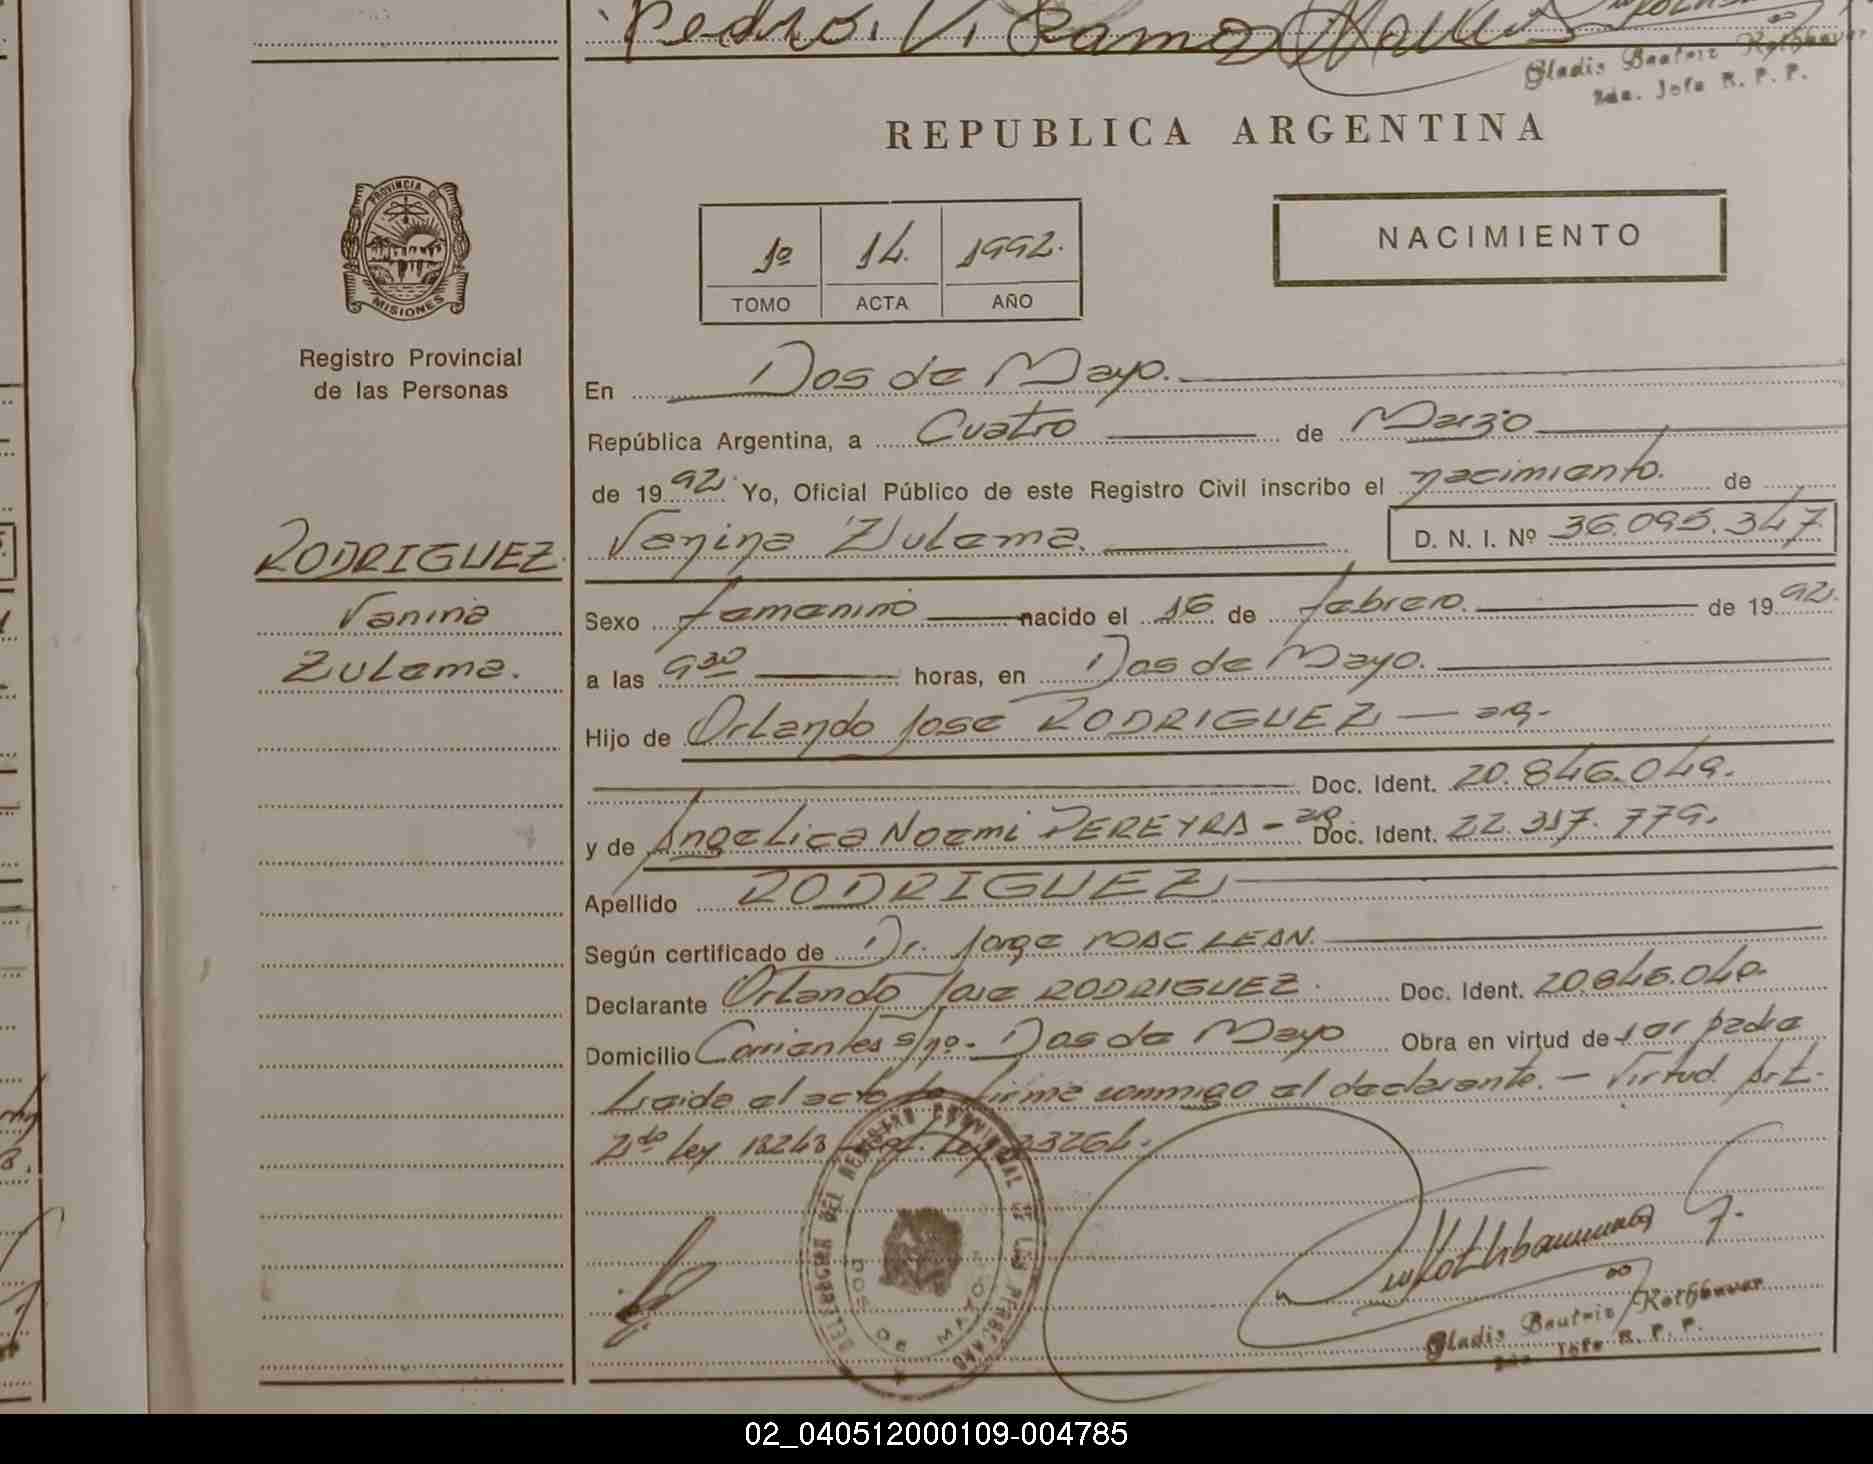 Pedro. V. Ramos
Gladis Beatriz Rothbauer
2da. Jefe R. P. P.
REPUBLICA ARGENTINA
PROVINCIA DE
MISIONES
Registro Provincial
de las Personas
1º 14. 1992.
TOMO ACTA AÑO
NACIMIENTO
En Dos de Mayo.
República Argentina, a Cuatro de Marzo
de 1992. Yo, Oficial Público de este Registro Civil inscribo el nacimiento. de
RODRIGUEZ.
Vanina Zulema. D. N. I. Nº 36.095.347
Vanina
Zulema.
Sexo femenino nacido el 16 de febrero. de 1992.
a las 9 30 horas, en Dos de Mayo.
Hijo de Orlando José RODRIGUEZ — arg.
Doc. Ident. 20.846.049.
y de Angelica Noemi PEREYRA - arg. Doc. Ident. 22.317.779.
Apellido RODRIGUEZ
Según certificado de Dr. Jorge MAC LEAN.
Declarante Orlando José RODRIGUEZ. Doc. Ident. 20.846.049.
Domicilio Corrientes s/nº. Dos de Mayo Obra en virtud de ser padre
Leida el acta la firma conmigo el declarante. — Virtud Art.
2do Ley 18248 Ley 23264.
DELEGACION DEL REGISTRO PROVINCIAL DE LAS PERSONAS
DOS DE MAYO
Gladis Beatriz Rothbauer
2da. Jefe R. P. P.
02_040512000109-004785